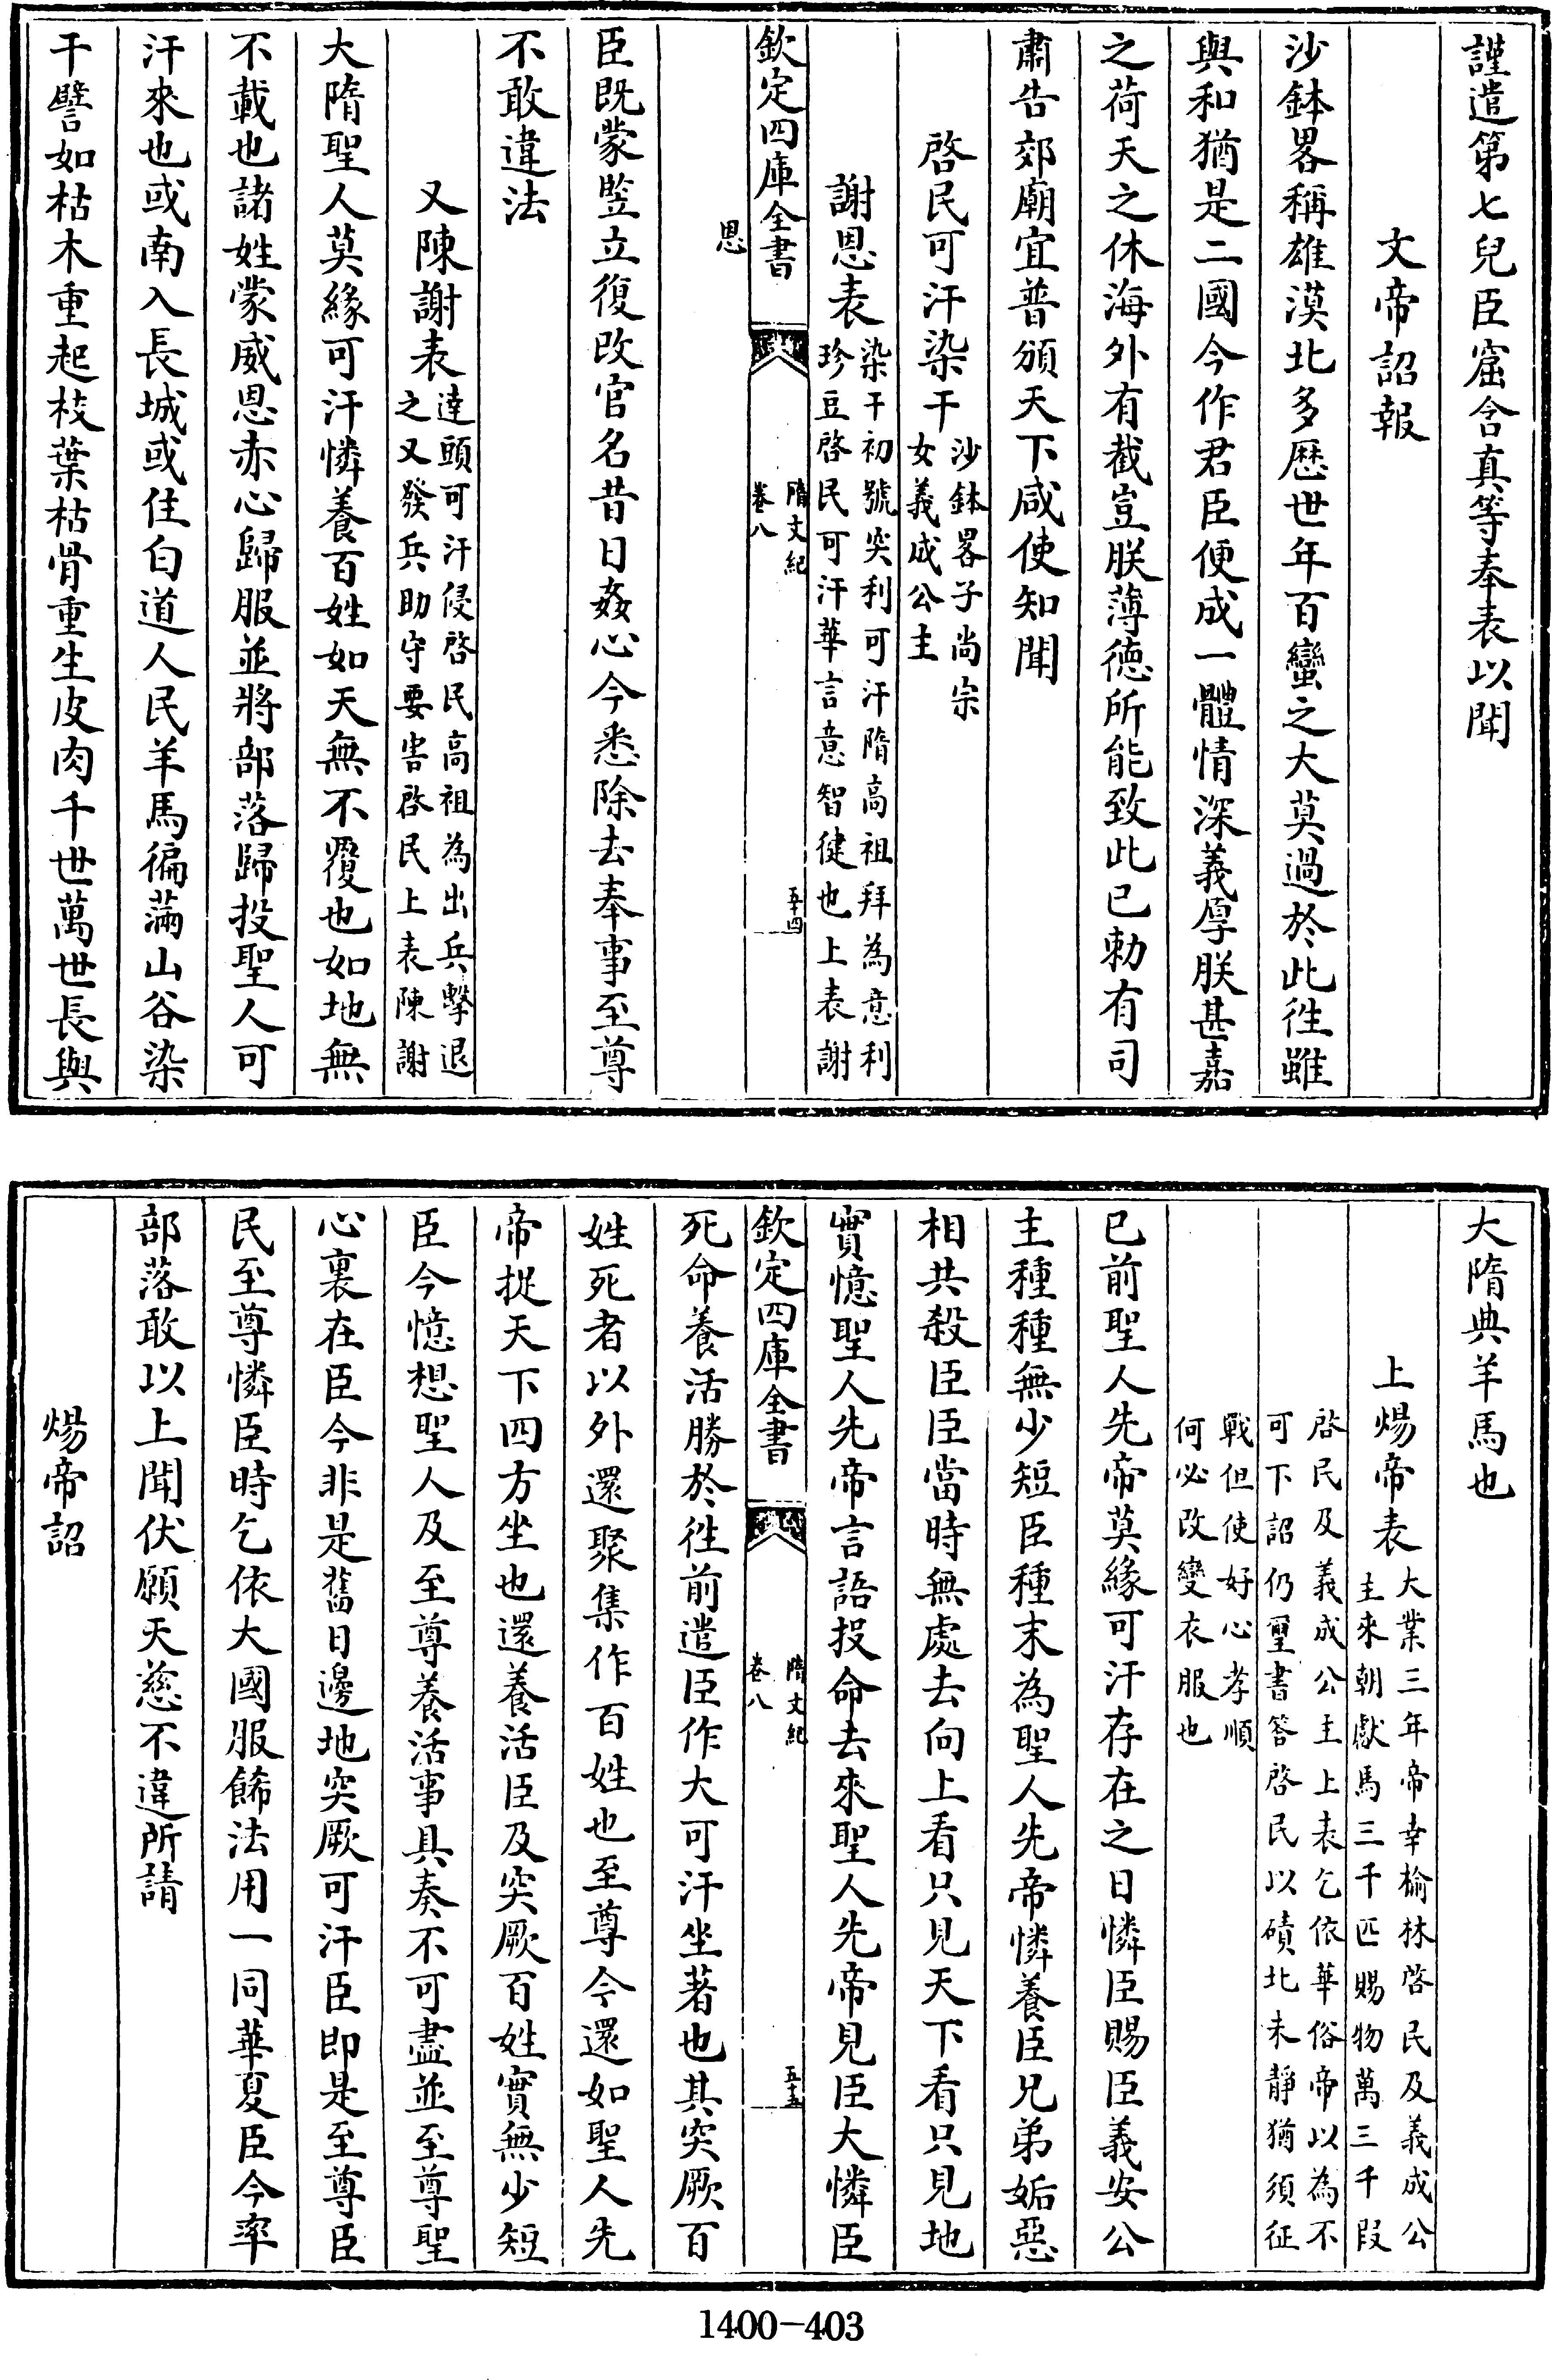 謹遣第七兒臣窟含真等奉表以聞
文帝詔報
沙鉢畧稱雄漠北多歴世年百蠻之大莫過於此徃雖
與和猶是二國今作君臣便成一體情深義厚朕甚嘉
之荷天之休海外有截豈朕薄德所能致此已勅有司
肅告郊廟宜普頒天下咸使知聞
啓民可汗染干沙鉢畧子尚宗
女義成公主
謝恩表染干初號突利可汗隋高祖拜為意利
珍豆啓民可汗華言意智健也上表謝
欽定四庫全書
隋文紀
卷八
五十四
恩
臣既蒙豎立復改官名昔日姦心今悉除去奉事至尊
不敢違法
又陳謝表達頭可汗侵啓民高祖為出兵擊退
之又發兵助守要害啓民上表陳謝
大隋聖人莫緣可汗憐養百姓如天無不覆也如地無
不載也諸姓蒙威恩赤心歸服並將部落歸投聖人可
汗來也或南入長城或住白道人民羊馬徧滿山谷染
干譬如枯木重起枝葉枯骨重生皮肉千世萬世長與
大隋典羊馬也
上煬帝表大業三年帝幸榆林啓民及義成公
主來朝獻馬三千匹賜物萬三千段
啓民及義成公主上表乞依華俗帝以為不
可下詔仍璽書答啓民以磧北未靜猶須征
戰但使好心孝順
何必改變衣服也
已前聖人先帝莫緣可汗存在之日憐臣賜臣義安公
主種種無少短臣種末為聖人先帝憐養臣兄弟妬惡
相共殺臣臣當時無處去向上看只見天下看只見地
實憶聖人先帝言語投命去來聖人先帝見臣大憐臣
欽定四庫全書
隋文紀
卷八
五十五
死命養活勝於徃前遣臣作大可汗坐著也其突厥百
姓死者以外還聚集作百姓也至尊今還如聖人先
帝捉天下四方坐也還養活臣及突厥百姓實無少短
臣今憶想聖人及至尊養活事具奏不可盡並至尊聖
心裏在臣今非是舊日邊地突厥可汗臣即是至尊臣
民至尊憐臣時乞依大國服飾法用一同華夏臣今率
部落敢以上聞伏願天慈不違所請
煬帝詔
1400-403